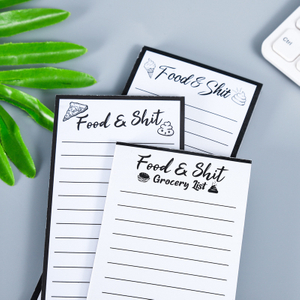 Food & Shit
Food & Shit
Food & Shit
Grocery List